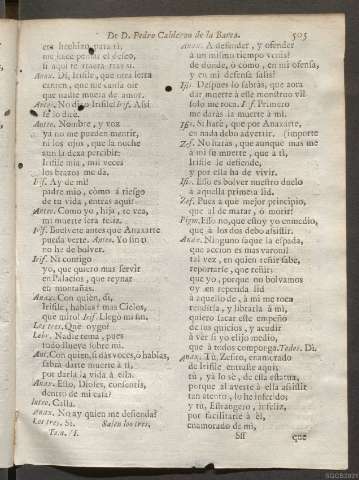 De D. Pedro Calderon de la Barca. 505
era hechizo para ti,
me hace penar el deseo,
si aqui te mata para ti.
Anax. Di, Irifile, que otra letra
canten, que me canta oir
que nadie muera de amor.
Anteo. No digo Irifile? Irif. Asi
te lo dice.
Anteo. Nombre, y voz
ya no me pueden mentir,
ni los ojos, que la noche
aun la dexa percibir:
Irifile mia, mil veces
los brazos me da.
Irif. Ay de mi!
padre mio, còmo à riesgo
de tu vida, entras aqui?
Anteo. Como yo, hija, te vea,
mi muerte serà feliz.
Irif. Buelvete antes que Anaxarte
pueda verte. Anteo. Yo sin ti
no he de bolver.
Irif. Ni contigo
yo, que quiero mas servir
en Palacios, que reynar
en montañas.
Anax. Con quien, di,
Irifile, hablas? mas Cielos,
que miro! Irif. Llegò mi fin.
Los tres. Què oygo?
Lebr. Nadie tema, pues
todo llueve sobre mi.
Ant. Con quien, si dàs voces, ò hablas,
sabrà darte muerte à ti,
por darla la vida à ella.
Anax. Esto, Dioses, consentis,
dentro de mi casa?
Anteo. Calla.
Anax. No ay quien me defienda?
Los tres. Sì. Salen los tres.
Tom. VI.
Anax. A defender, y ofender
à un mismo tiempo venis?
de donde, ò como, en mi ofensa,
y en mi defensa salis?
Ifis. Despues lo sabràs, que aora
dar muerte à este monstruo vil
solo me toca. Irif. Primero
me daràs la muerte à mi.
Ifis. Si harè, que por Anaxarte,
es nada debo advertir.
Zef. No haràs, que aunque mas me importe
à mi su muerte, que à ti,
Irifile le defiende,
y por ella he de vivir.
Ifis. Esso es bolver nuestro duelo
à aquella primera lid.
Zef. Pues à que mejor principio,
que al de matar, ò morir?
Pigm. Esso no, que estoy yo enmedio,
que à los dos debo assistir.
Anax. Ninguno saque la espada,
que accion es mas varonil
tal vez, en quien reñir sabe,
reportarse, que reñir:
que yo, porque no bolvamos
oy en repetida lid
à aquello de, à mi me toca
rendirla, y librarla à mi,
quiero sacar este empeño
de sus quicios, y acudir
à ver si yo elijo medio,
que à todos componga. Todos. Di.
Anax. Tù, Zefiro, enamorado
de Irifile entraste aqui;
tù, ya lo sè, de essa estatua,
porque al averte à ella assistir
tan atento, lo he inferido;
y tù, Estrangero, infeliz,
por facilitarte à èl,
enamorado de mi,
Sss que